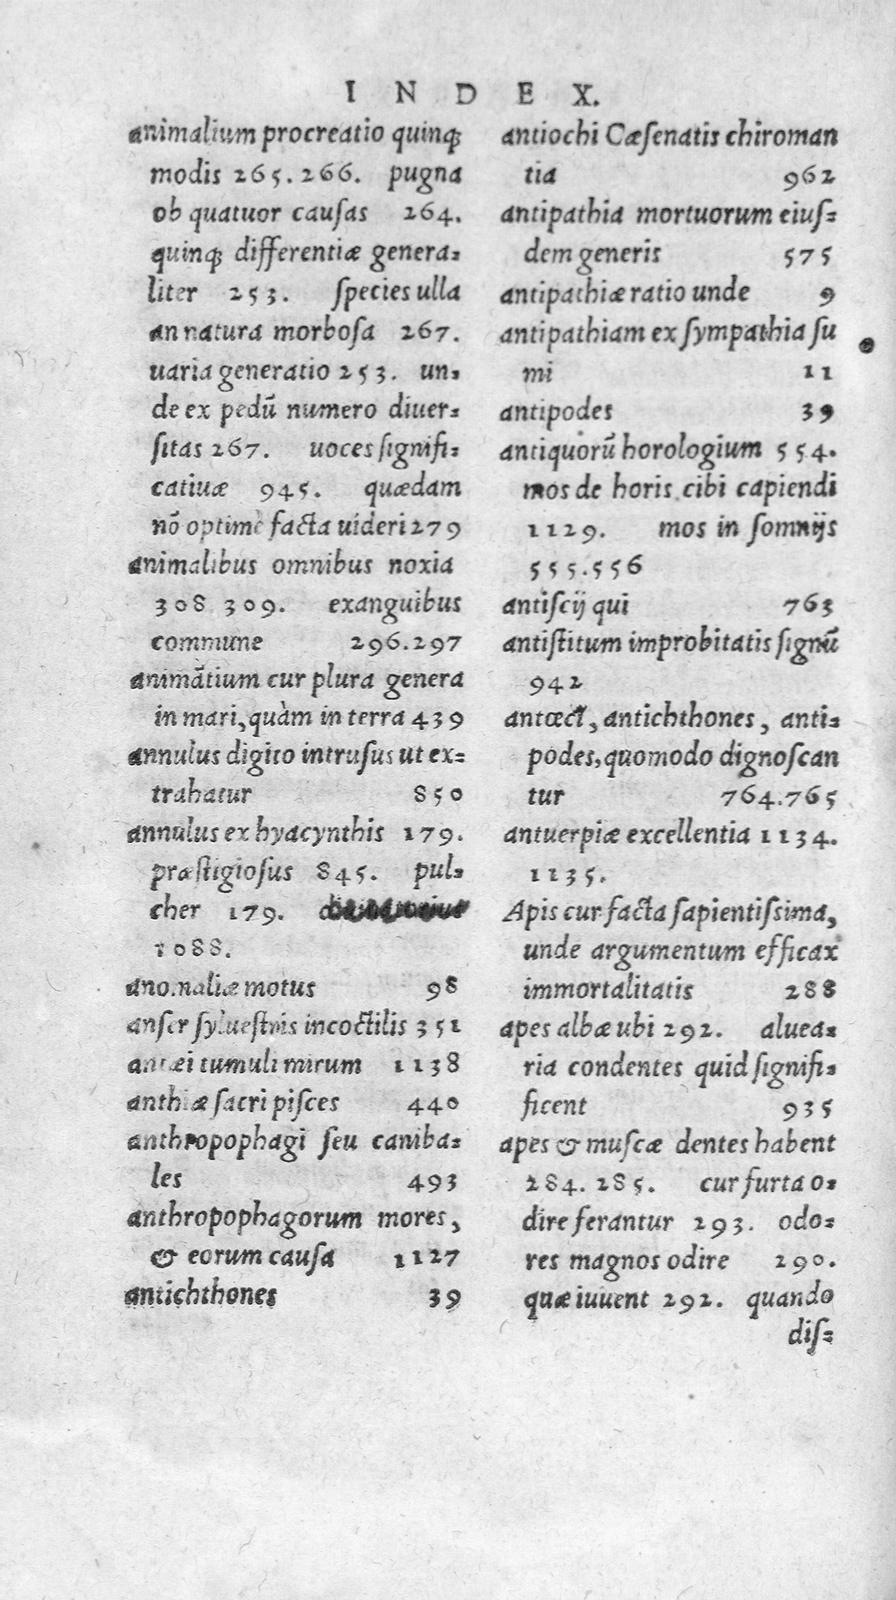 INDEX.
animalium procreatio quinq;
modis 265.266. pugna
ob quatuor cauſas 264.
quinq; differentiæ genera-
liter 253. ſpecies ulla
an natura morboſa 267.
uaria generatio 253. un-
de ex pedū numero diuer-
ſitas 267. uoces ſignifi-
catiuæ 945. quædam
nō optimè facta uideri 279
animalibus omnibus noxia
308 309. exanguibus
commune 296.297
animātium cur plura genera
in mari, quàm in terra 439
annulus digito intruſus ut ex-
trahatur 850
annulus ex hyacynthis 179.
præſtigioſus 845. pul-
cher 179.
1088.
anomaliæ motus 98
anſer ſylueſtris incoctilis 351
antæi tumuli mirum 1138
anthiæ ſacri piſces 440
anthropophagi ſeu caniba-
les 493
anthropophagorum mores,
& eorum cauſa 1127
antichthones 39
antiochi Cæſenatis chiroman
tia 962
antipathia mortuorum eiuſ-
dem generis 575
antipathiæ ratio unde 9
antipathiam ex ſympathia ſu
mi 11
antipodes 39
antiquorū horologium 554.
mos de horis cibi capiendi
1129. mos in ſomnijs
555.556
antiſcij qui 763
antiſtitum improbitatis ſignū
942
antœci, antichthones, anti-
podes, quomodo dignoſcan
tur 764.765
antuerpiæ excellentia 1134.
1135.
Apis cur facta ſapientiſsima,
unde argumentum efficax
immortalitatis 288
apes albæ ubi 292. aluea-
ria condentes quid ſignifi-
ficent 935
apes & muſcæ dentes habent
284.285. cur furta o-
dire ferantur 293. odo-
res magnos odire 290.
quæ iuuent 292. quando
diſ-